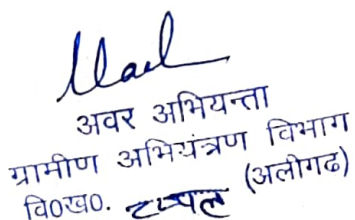 अवर अभियन्ता
ग्रामीण अभियंत्रण विभाग
वि०ख०. टप्पल (अलीगढ)